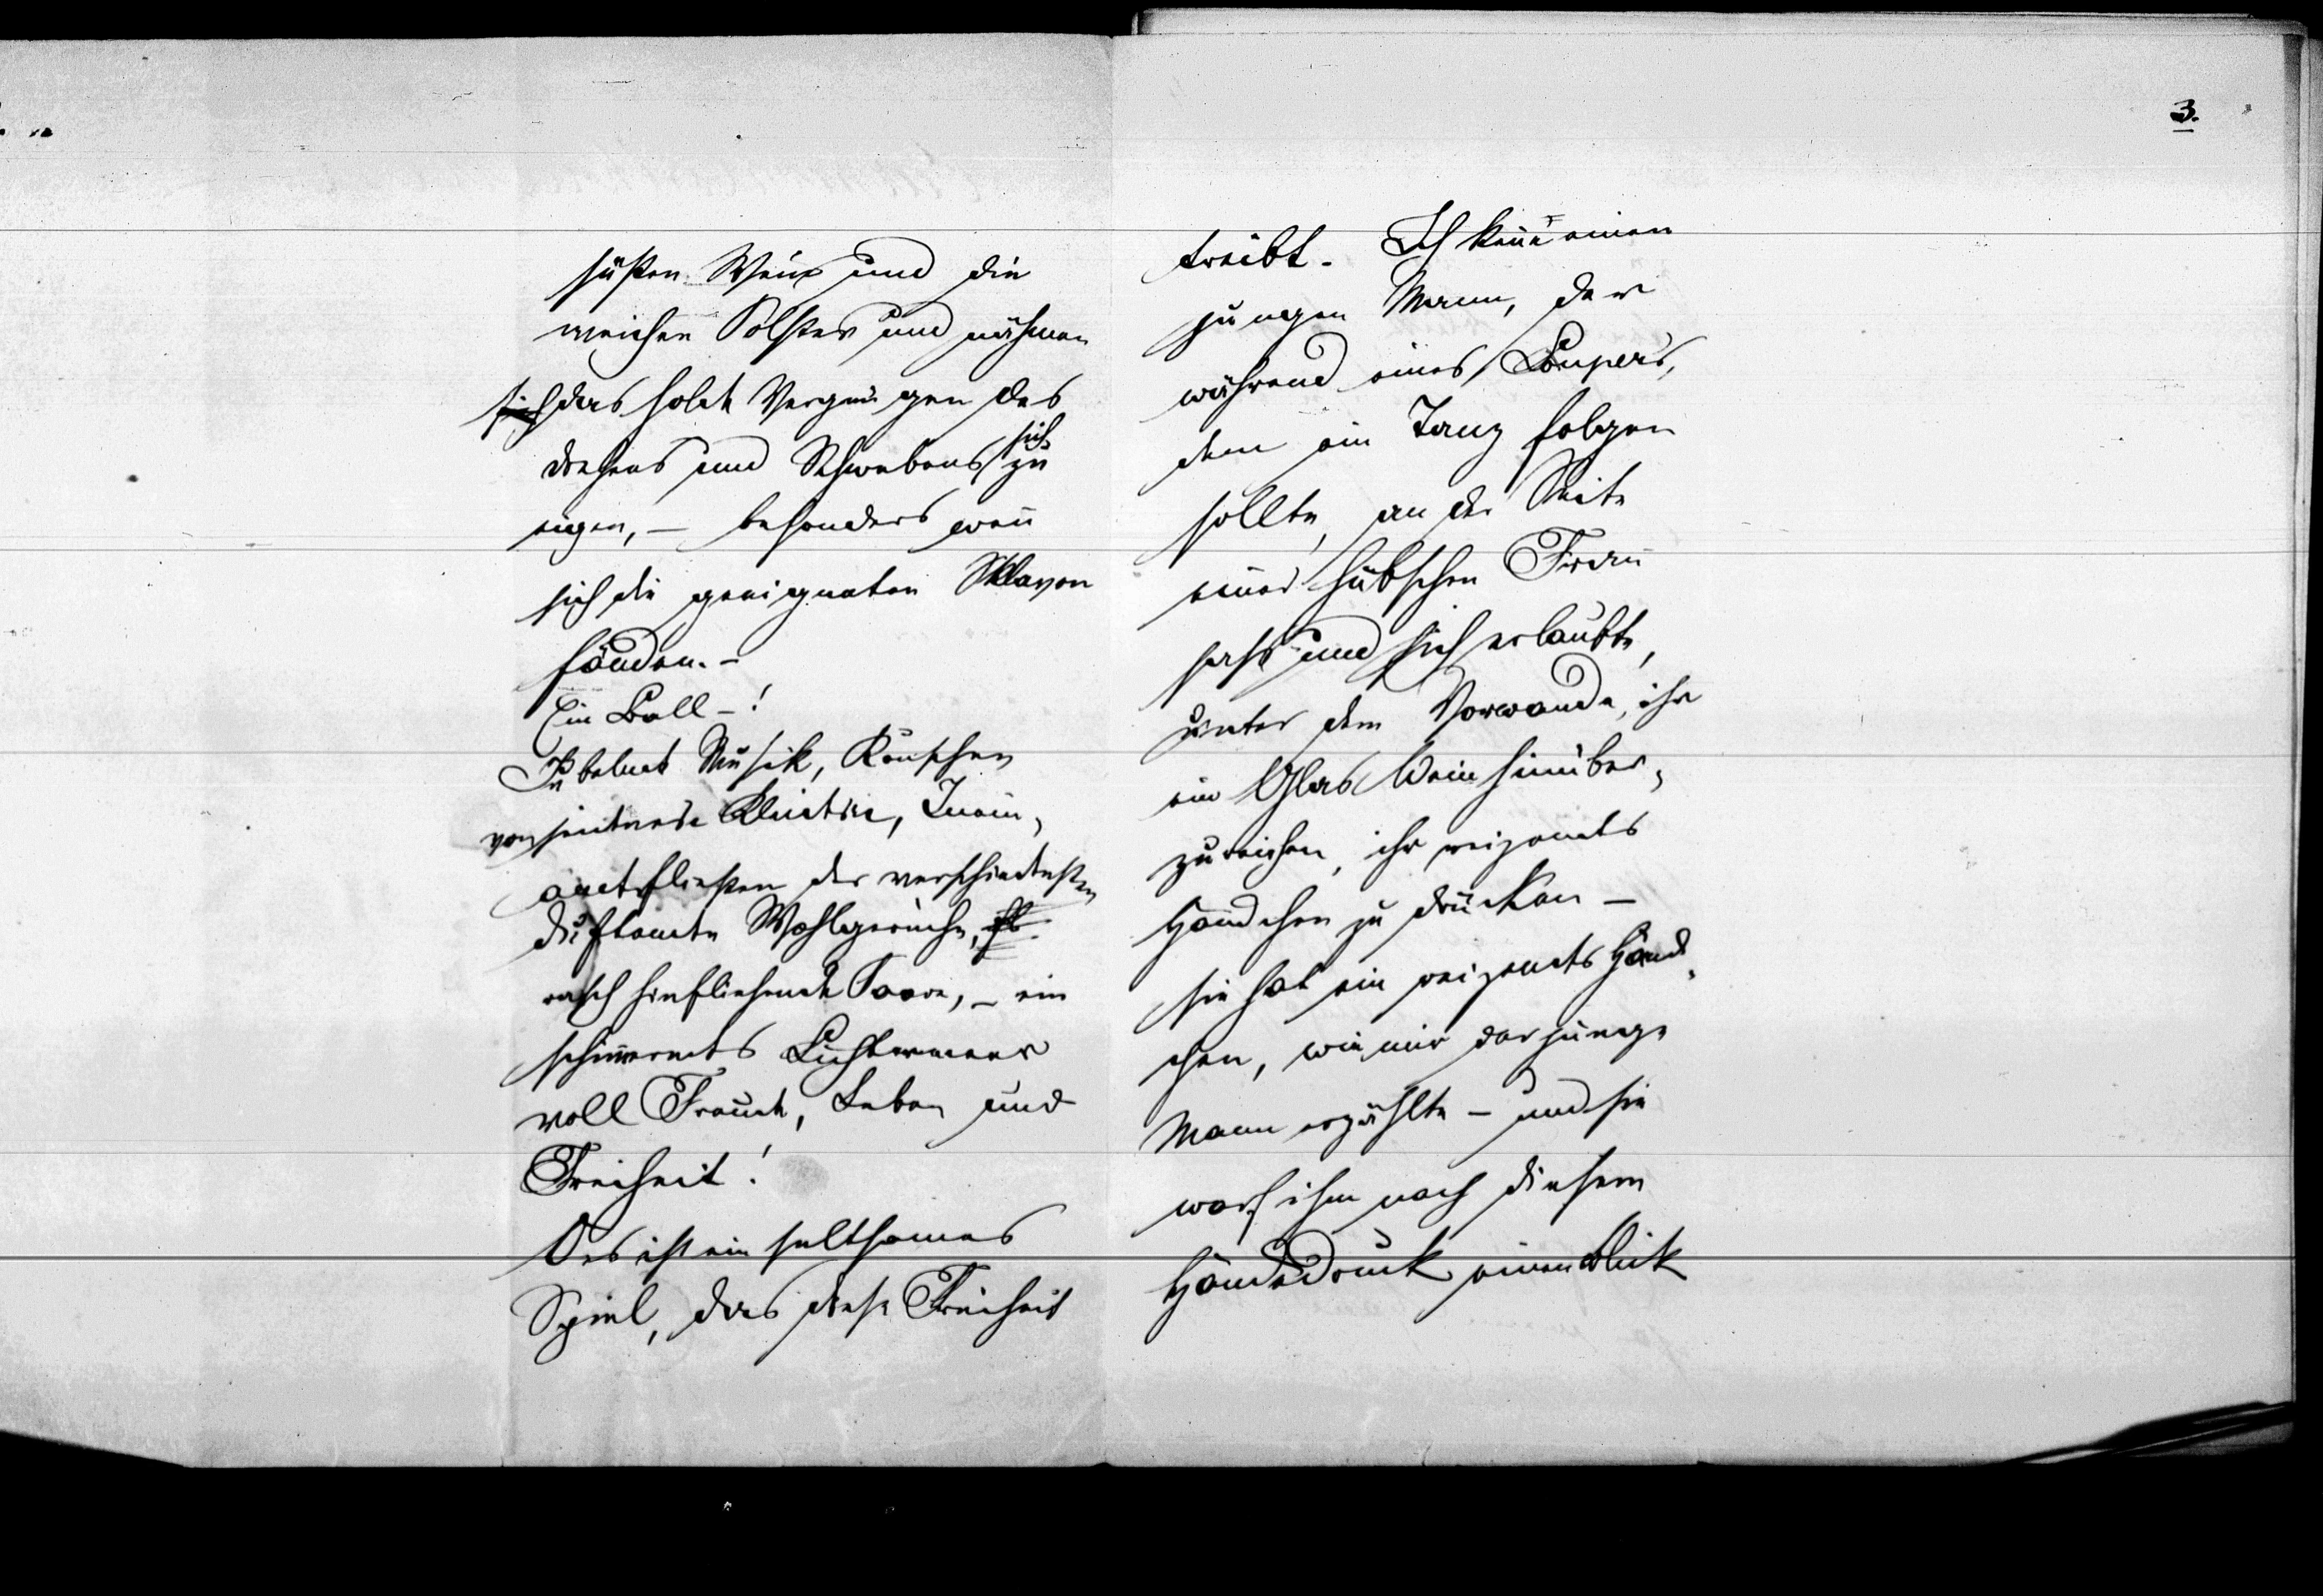 3.
süßen Wein und die
weichen Polster und nähmen
sich das holde Vergnügen des
Drehens und Schwebens sich zu
eigen, – besonders weñ
sich die geeigneten Sklaven
fänden. –
Ein Ball – !
Jubelnde Musik, Rauschen
von seidener Kleider, Inein-
anderfließen der verschiedensten
duftenden Wohlgerüche,
rasch hinfliehende Paare, – ein
schim̄erndes Lichtermeer
voll Freude, Leben und
Freiheit!
Das ist ein selthsames
Spiel, das diese Freiheit
treibt. Ich keñe einen
jungen Mann, der
während eines Soupers,
dem ein Tanz folgen
sollte, an der Seite
einer hübschen Frau
saß und sich erlaubte,
unter dem Vorwande, ihr
ein Glas Wein hinüber-
zureichen, ihr reizendes
Händchen zu drücken –
sie hat ein reizendes Händ-
chen, wie mir der junge
Mann erzählte – und sie
warf ihm nach diesem
Händedruck einen Blick